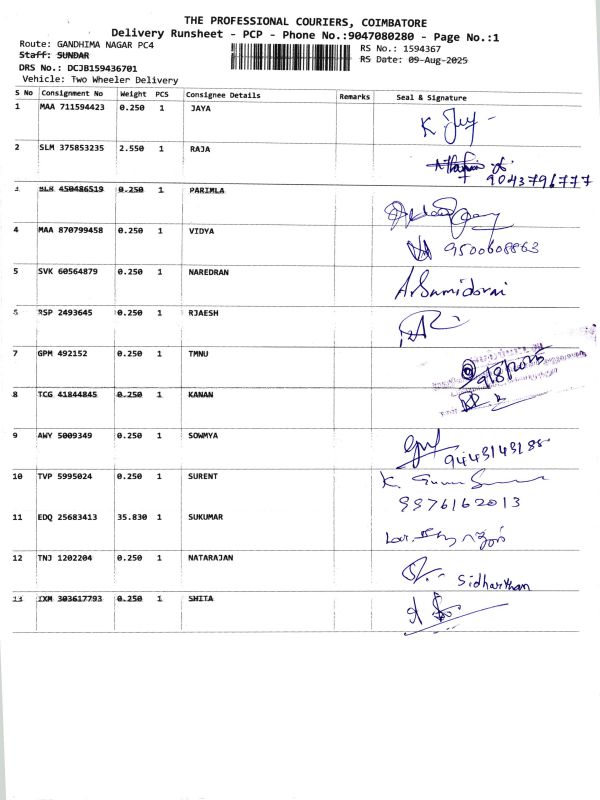 THE PROFESSIONAL COURIERS, COIMBATORE
Delivery Runsheet - PCP - Phone No.:9047080280 - Page No.:1
Route: GANDHIMA NAGAR PC4
RS No.: 1594367
Staff: SUNDAR
RS Date: 09-Aug-2025
DRS No.: DCJB159436701
Vehicle: Two Wheeler Delivery
S No Consignment No Weight PCS Consignee Details Remarks Seal & Signature
1 MAA 711594423 0.250 1 JAYA
K
2 SLM 375853235 2.550 1 RAJA
9043796777
3 BLR 450486519 0.250 1 PARIMLA
4 MAA 870799458 0.250 1 VIDYA
9500608863
5 SVK 60564879 0.250 1 NAREDRAN
6 RSP 2493645 0.250 1 RJAESH
7 GPM 492152 0.250 1 TMNU
9/8/2025
8 TCG 41844845 0.250 1 KANAN
9 AWY 5009349 0.250 1 SOWMYA
10 TVP 5995024 0.250 1 SURENT
K.
9976162013
11 EDQ 25683413 35.830 1 SUKUMAR
12 TNJ 1202204 0.250 1 NATARAJAN
Sidharthan
13 IXM 303617793 0.250 1 SHITA